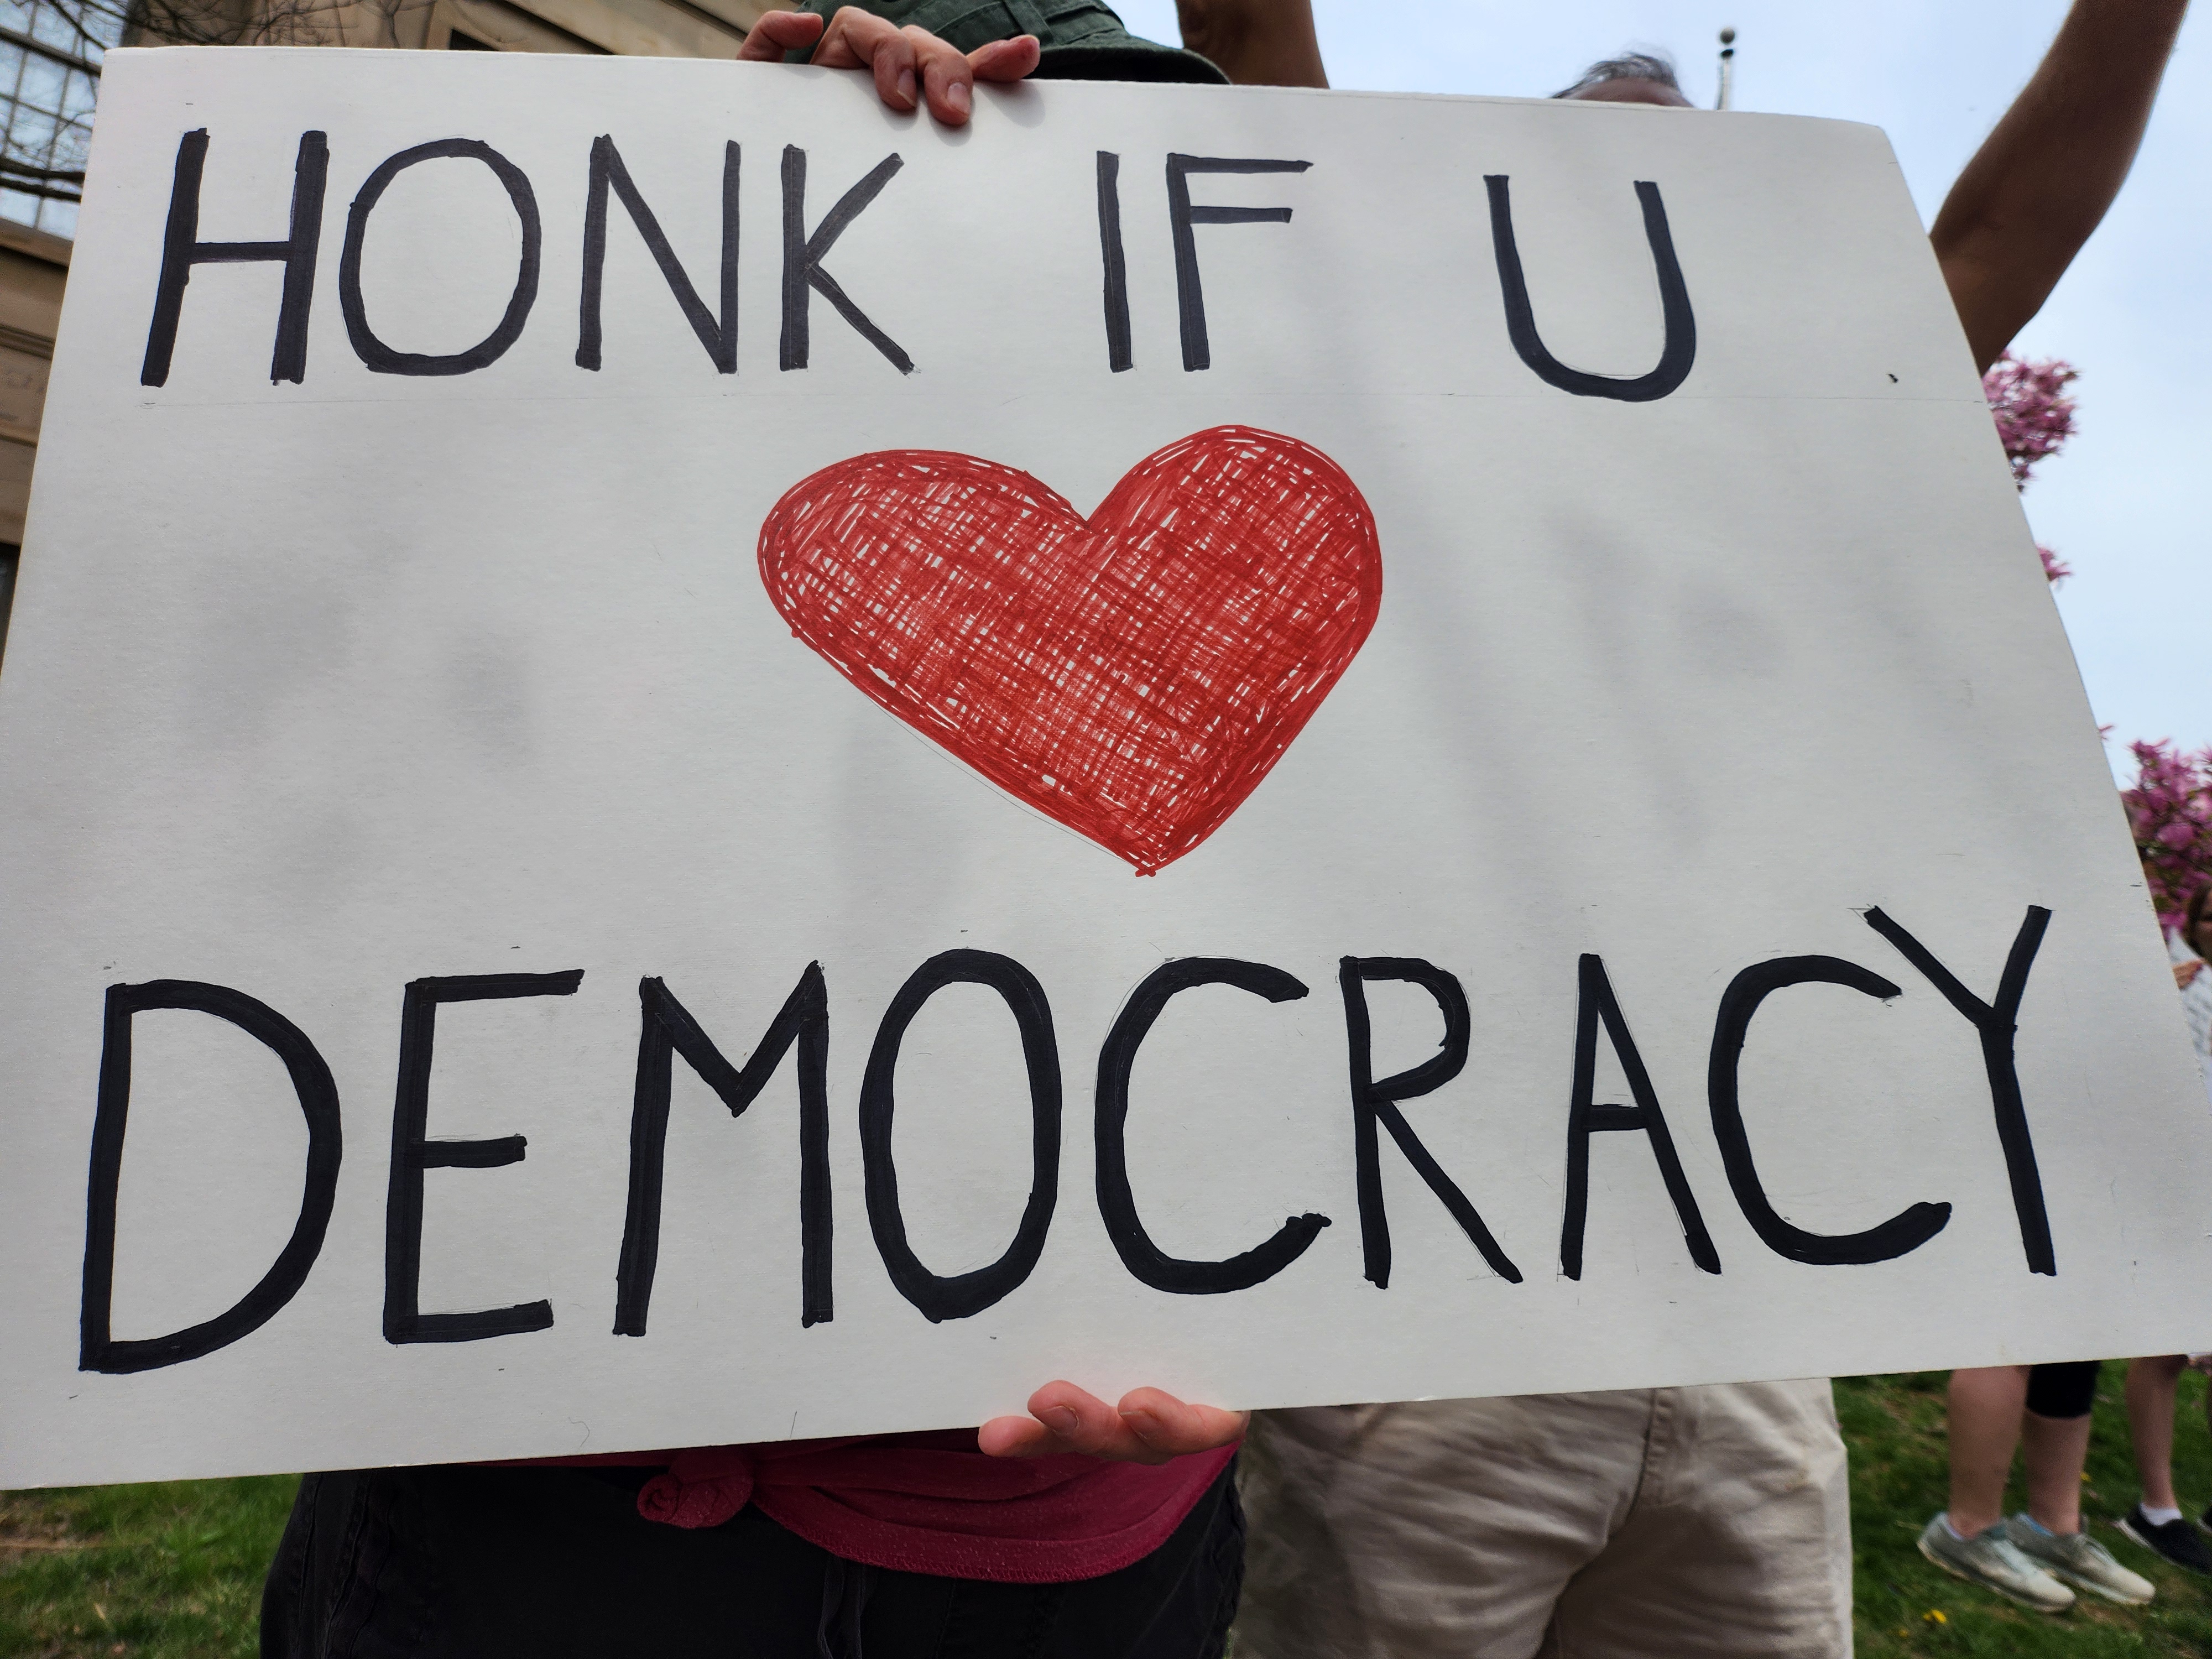 HONK IF U
DEMOCRACY